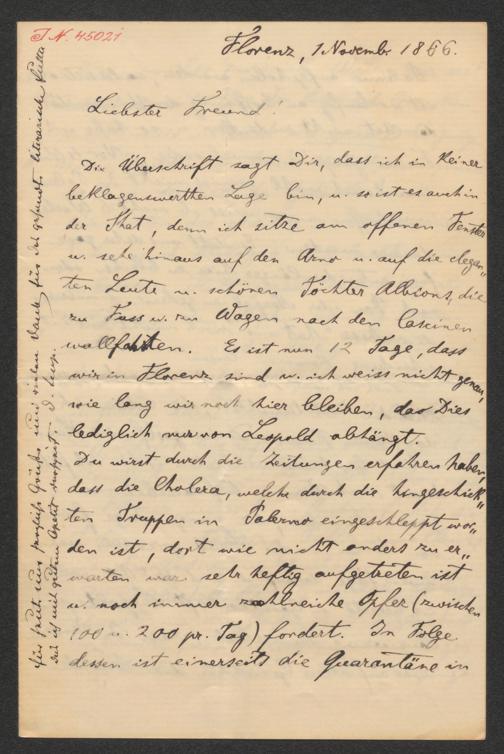 J. N. 45021
Florenz, 1 Novembr 1866.
Liebster Freund!
Die Überschrift sagt Dir, dass ich in keiner
beklagenswerthen Lage bin, u. so ist es auch in
der That, denn ich sitze am offenen Fenster
u. sehe hinaus auf den Arno u. auf die elegan„
ten Leute u. schönen Töchter Albions, die
zu Fuss u. zu Wagen nach den Cascinen
wallfahrten. Es ist nun 12 Tage, dass
wir in Florenz sind u. ich weiss nicht genau,
wie lang wir noch hier bleiben, da Dies
lediglich nur von Leopold abhängt.
Du wirst durch die Zeitungen erfahren haben,
dass die Cholera, welche durch die hingeschick„
ten Truppen in Palermo eingeschleppt wor„
den ist, dort wie nicht anders zu er„
warten war sehr heftig aufgetreten ist
u. noch immer zahlreiche Opfer (zwischen
100 u. 200 pr. Tag) fordert. In Folge
dessen ist einerseits die Quarantäne in
Grüße und vielen Dank für das gesandte literarische
die ich mit gutem Apetit